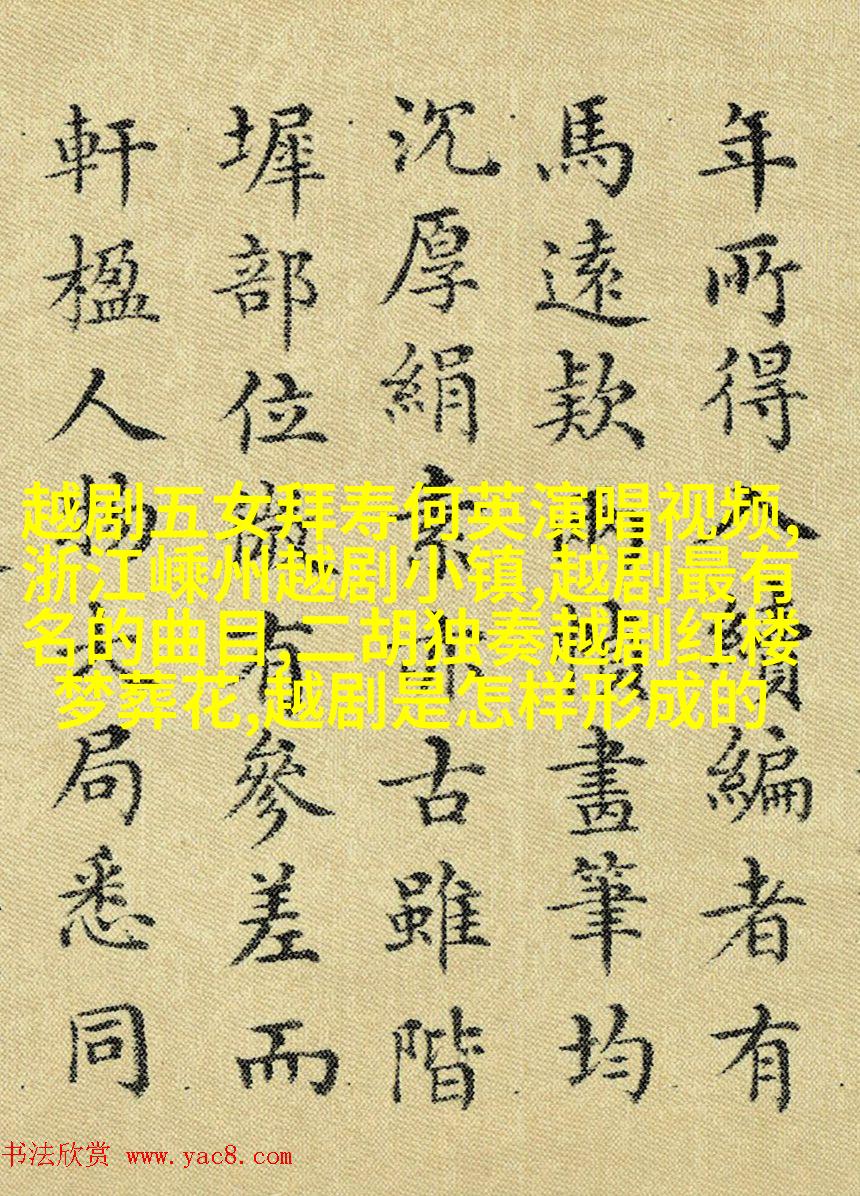 年所得入續編者有
馬遠款畫筆均
沉厚絹素亦古雖階
墀部位微有參差而
軒楹人物大局悉同
越剧五女拜寿何英演唱视频,
浙江嵊州越剧小镇,越剧最有
名的曲目,二胡独奏越剧红楼
梦葬花,越剧是怎样形成的
书法欣赏 www.yac8.com